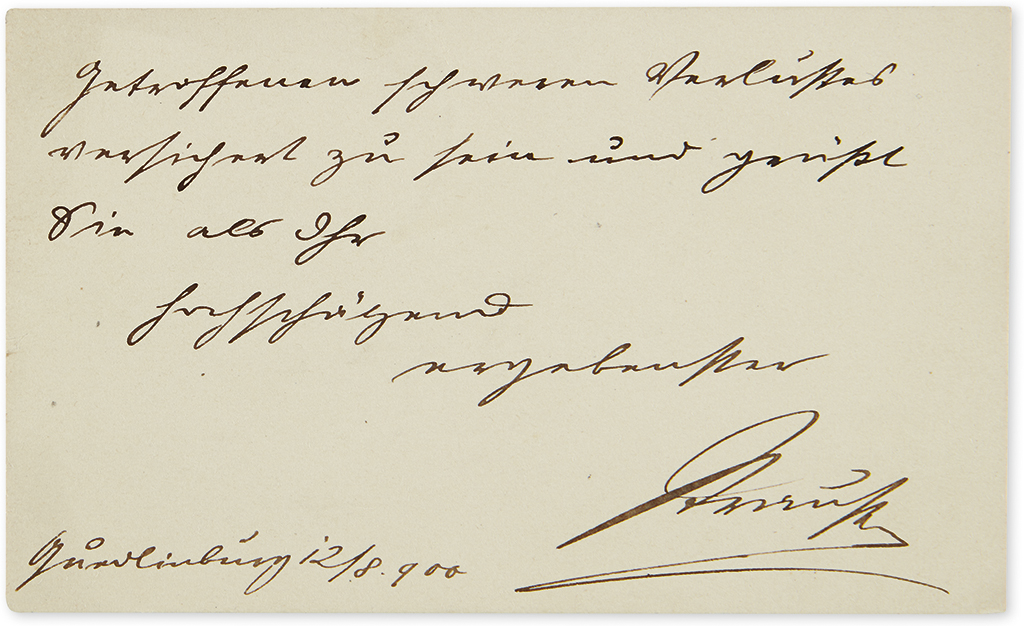 Getroffenen schweren Verlustes
versichert zu sein und grüßt
Sie als Ihr
hochschätzend
ergebenster
Strauß
Quedlinburg 12/8. 900